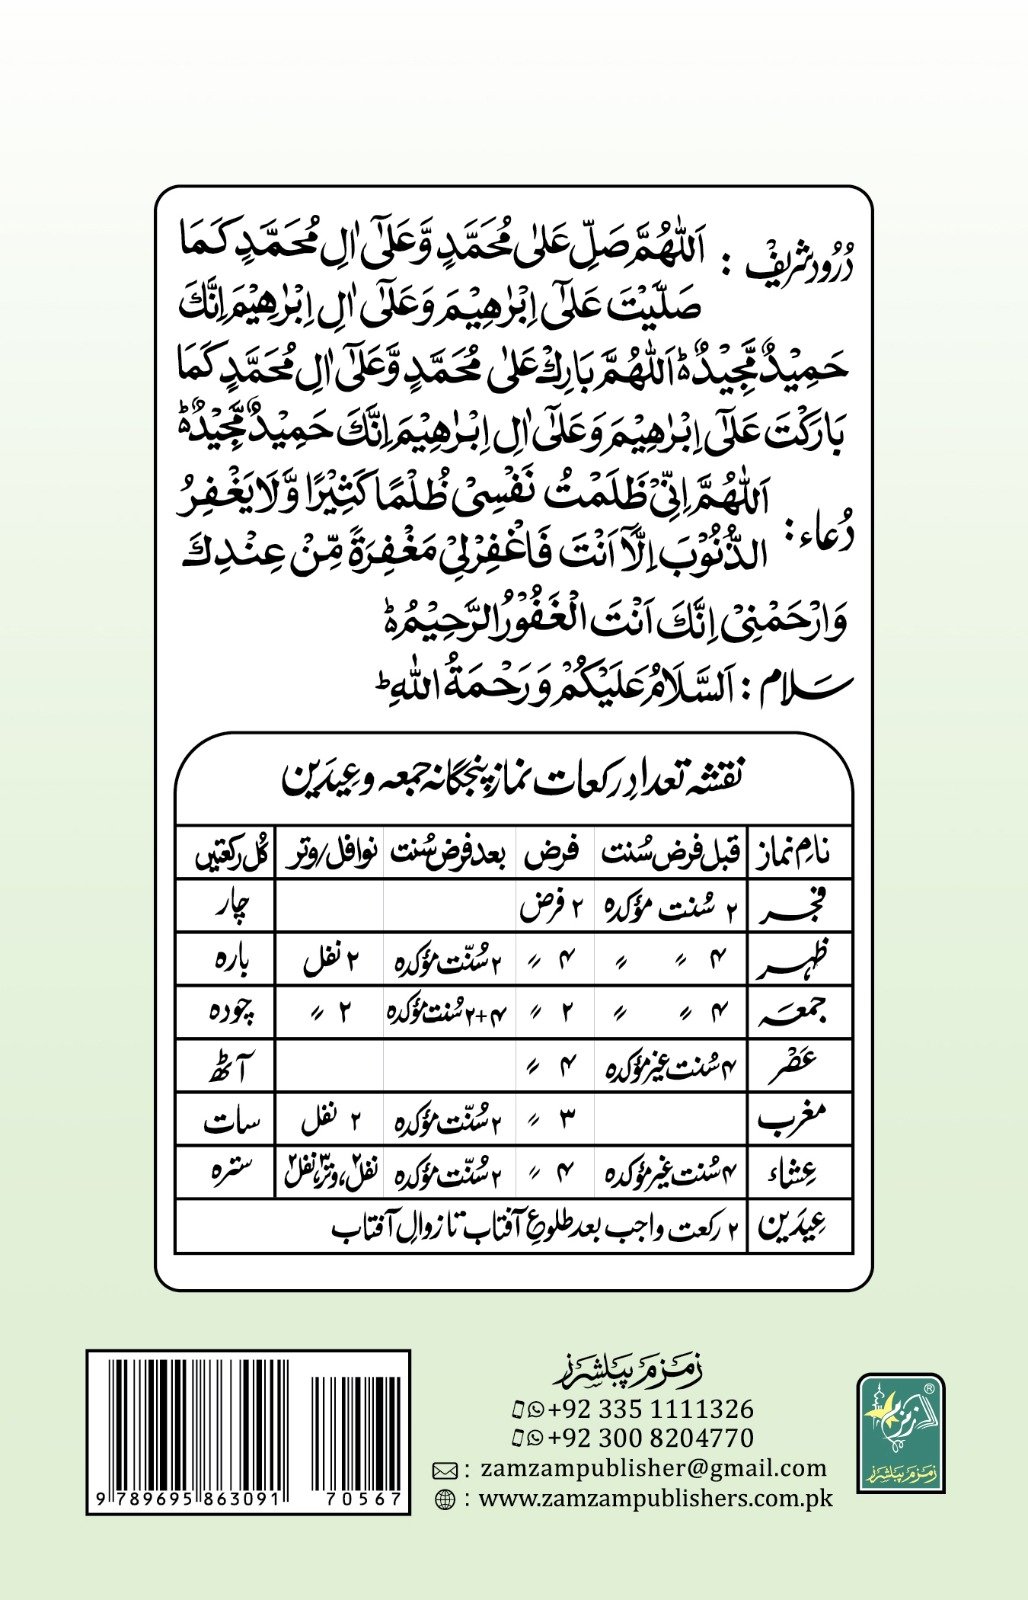 دُرُود شریف: اَللّٰهُمَّ صَلِّ عَلٰى مُحَمَّدٍ وَّعَلٰٓى اٰلِ مُحَمَّدٍ كَمَا
صَلَّيْتَ عَلٰٓى اِبْرٰهِيْمَ وَعَلٰٓى اٰلِ اِبْرٰهِيْمَ اِنَّكَ
حَمِيْدٌ مَّجِيْدٌ ؕ اَللّٰهُمَّ بَارِكْ عَلٰى مُحَمَّدٍ وَّعَلٰٓى اٰلِ مُحَمَّدٍ كَمَا
بَارَكْتَ عَلٰٓى اِبْرٰهِيْمَ وَعَلٰٓى اٰلِ اِبْرٰهِيْمَ اِنَّكَ حَمِيْدٌ مَّجِيْدٌ ؕ
دُعاء: اَللّٰهُمَّ اِنِّىْ ظَلَمْتُ نَفْسِىْ ظُلْمًا كَثِيْرًا وَّلَا يَغْفِرُ
الذُّنُوْبَ اِلَّآ اَنْتَ فَاغْفِرْلِىْ مَغْفِرَةً مِّنْ عِنْدِكَ
وَارْحَمْنِىْ اِنَّكَ اَنْتَ الْغَفُوْرُ الرَّحِيْمُ ؕ
سلام: اَلسَّلَامُ عَلَيْكُمْ وَرَحْمَةُ اللّٰهِ ؕ
نقشہ تعدادِ رکعات نماز پنجگانہ جمعہ و عِیدَین
نامِ نماز قبل فرض سُنت فرض بعد فرض سُنت نوافل/وتر کُل رکعتیں
فجر ۲ سُنت مؤکدہ ۲ فرض چار
ظہر ۴ 〃 〃 ۴ 〃 ۲ سُنّت مؤکدہ ۲ نفل بارہ
جمعہ ۴ 〃 〃 ۲ 〃 ۴+۲ سُنت مؤکدہ ۲ 〃 چودہ
عَصْر ۴ سُنت غیر مؤکدہ ۴ 〃 آٹھ
مغرب ۳ 〃 ۲ سُنّت مؤکدہ ۲ نفل سات
عِشاء ۴ سُنت غیر مؤکدہ ۴ 〃 ۲ سُنّت مؤکدہ ۲ نفل، ۳ وتر، ۲ نفل سترہ
عِیدَین ۲ رکعت واجب بعد طلوعِ آفتاب تا زوالِ آفتاب
زمزم پبلشرز
+92 335 1111326
+92 300 8204770
: zamzampublisher@gmail.com
: www.zamzampublishers.com.pk
9 789695 863091
70567
زمزم ®
زمزم پبلشرز